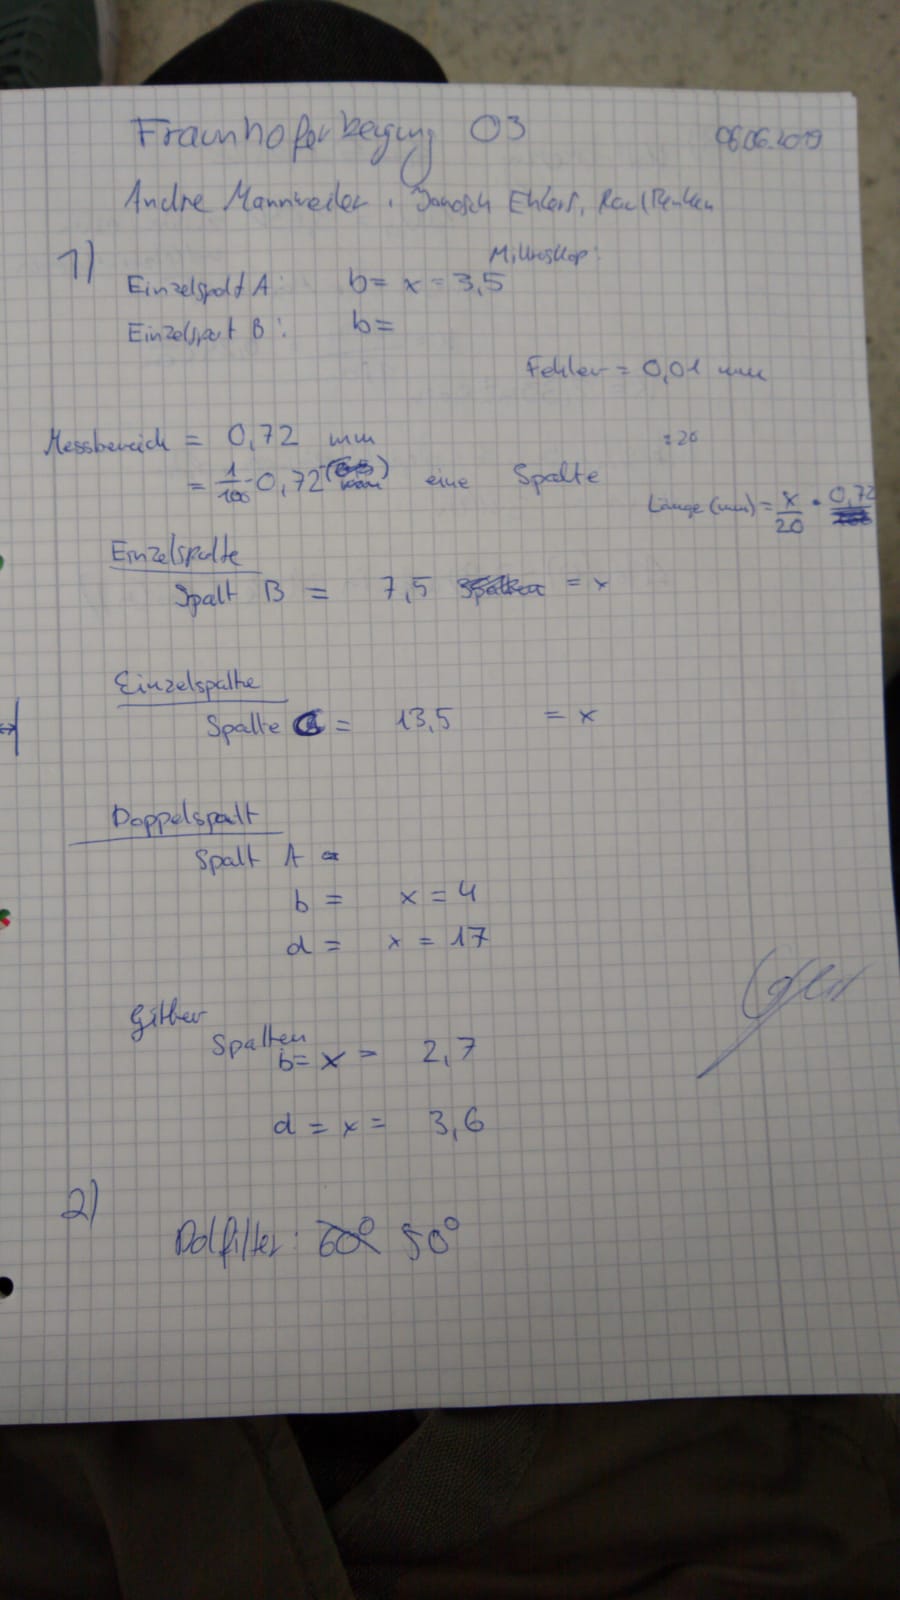 Fraunhoferbeugung O3 06.06.2019
Andre Mannweiler, Janosch Ehlers,
1)
Mikroskop:
Einzelspalt A: b= x = 3,5
Einzelspalt B: b=
Fehler = 0,01 mm
Messbereich = 0,72 mm = 20
= 1/100 · 0,72 eine Spalte
Länge (mm) = x/20 · 0,72
Einzelspalte
Spalt B = 7,5 = x
Einzelspalte
Spalte C = 13,5 = x
Doppelspalt
Spalt A =
b = x = 4
d = x = 17
Gitter
Spalten
b = x = 2,7
d = x = 3,6
2)
Polfilter: 60° 50°